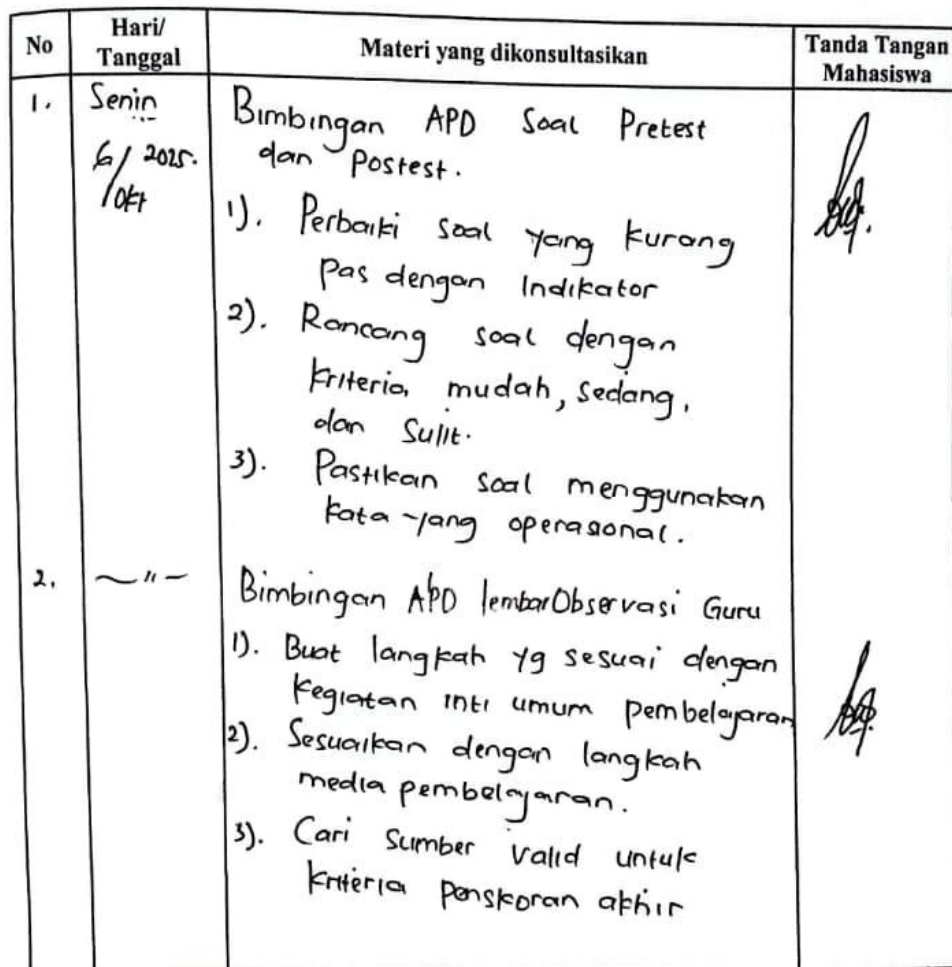 No
Hari/
Tanggal
Materi yang dikonsultasikan
Tanda Tangan
Mahasiswa
1.
Senin
6/ 2025.
/Okt
Bimbingan APD Soal Pretest
dan Postest.
1). Perbaiki soal yang kurang
pas dengan Indikator
2). Rancang soal dengan
kriteria mudah, sedang,
dan Sulit.
3). Pastikan soal menggunakan
kata-yang operasional.
2.
~ " -
Bimbingan APD lembar Observasi Guru
1). Buat langkah yg sesuai dengan
kegiatan inti umum pembelajaran
2). Sesuaikan dengan langkah
media pembelajaran.
3). Cari Sumber valid untuk
kriteria penskoran akhir